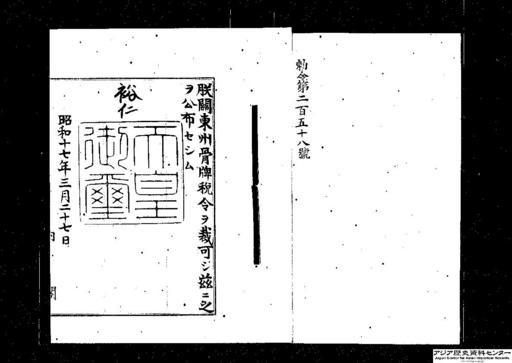 勅令第二百五十八號
朕關東州骨牌稅令ヲ裁可シ茲ニ之
ヲ公布セシム
裕仁
天皇
御璽
昭和十七年三月二十七日
アジア歴史資料センター
Japan Center for Asian Historical Records